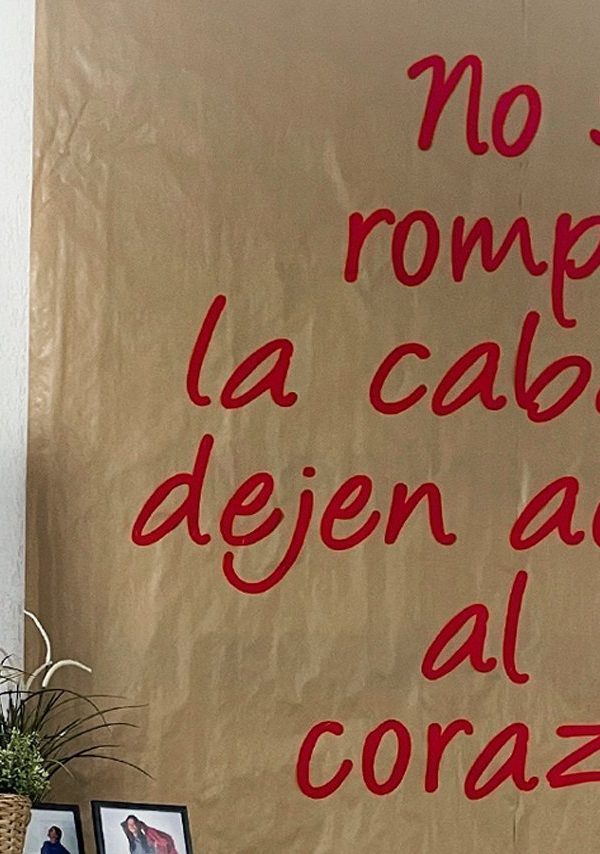 No
romp
la cab
dejen a
al
coraz